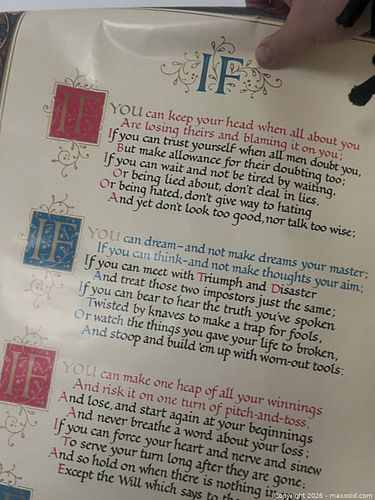 IF
IF YOU can keep your head when all about you
Are losing theirs and blaming it on you;
If you can trust yourself when all men doubt you,
But make allowance for their doubting too;
If you can wait and not be tired by waiting,
Or being lied about, don't deal in lies,
Or being hated, don't give way to hating
And yet don't look too good, nor talk too wise;
IF YOU can dream-and not make dreams your master;
If you can think-and not make thoughts your aim;
If you can meet with Triumph and Disaster
And treat those two impostors just the same;
If you can bear to hear the truth you've spoken
Twisted by knaves to make a trap for fools,
Or watch the things you gave your life to broken,
And stoop and build 'em up with worn-out tools:
IF YOU can make one heap of all your winnings
And risk it on one turn of pitch-and-toss,
And lose, and start again at your beginnings
And never breathe a word about your loss;
If you can force your heart and nerve and sinew
To serve your turn long after they are gone;
And so hold on when there is nothing
Except the Will which says to
Copyright 2026 - maxsold.com